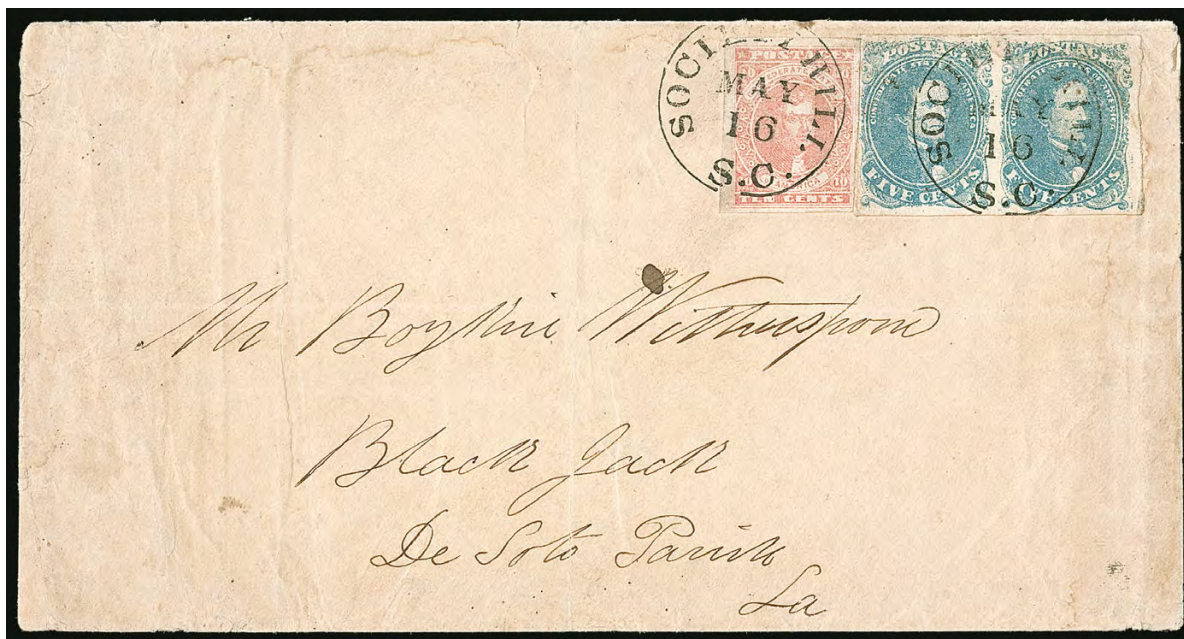 SOCIETY HILL
MAY
16
S.C.
POSTAGE
TEN CENTS
SOCIETY HILL
MAY
16
S.C.
POSTAGE
FIVE CENTS
POSTAGE
FIVE CENTS
Mr Boykin Witherspoon
Black Jack
De Soto Parish
La